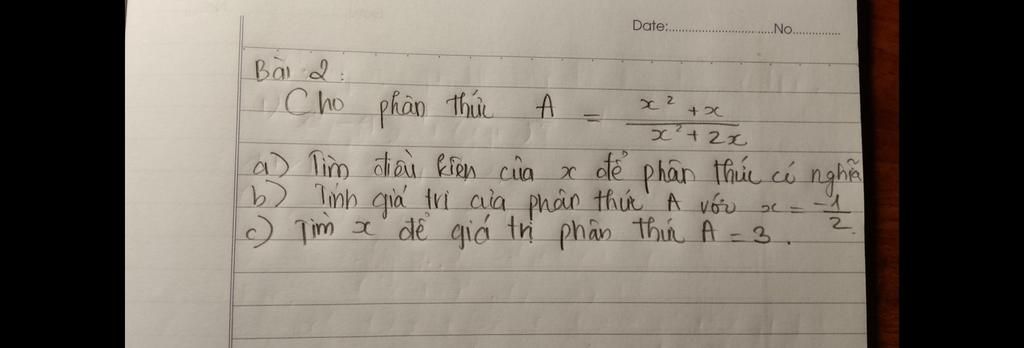 Date:..............................No..............
Bài 2:
Cho phân thức A = \frac{x² + x}{x² + 2x}
a) Tìm điều kiện của x để phân thức có nghĩa
b) Tính giá trị của phân thức A với x = \frac{-1}{2}.
c) Tìm x để giá trị phân thức A = 3.